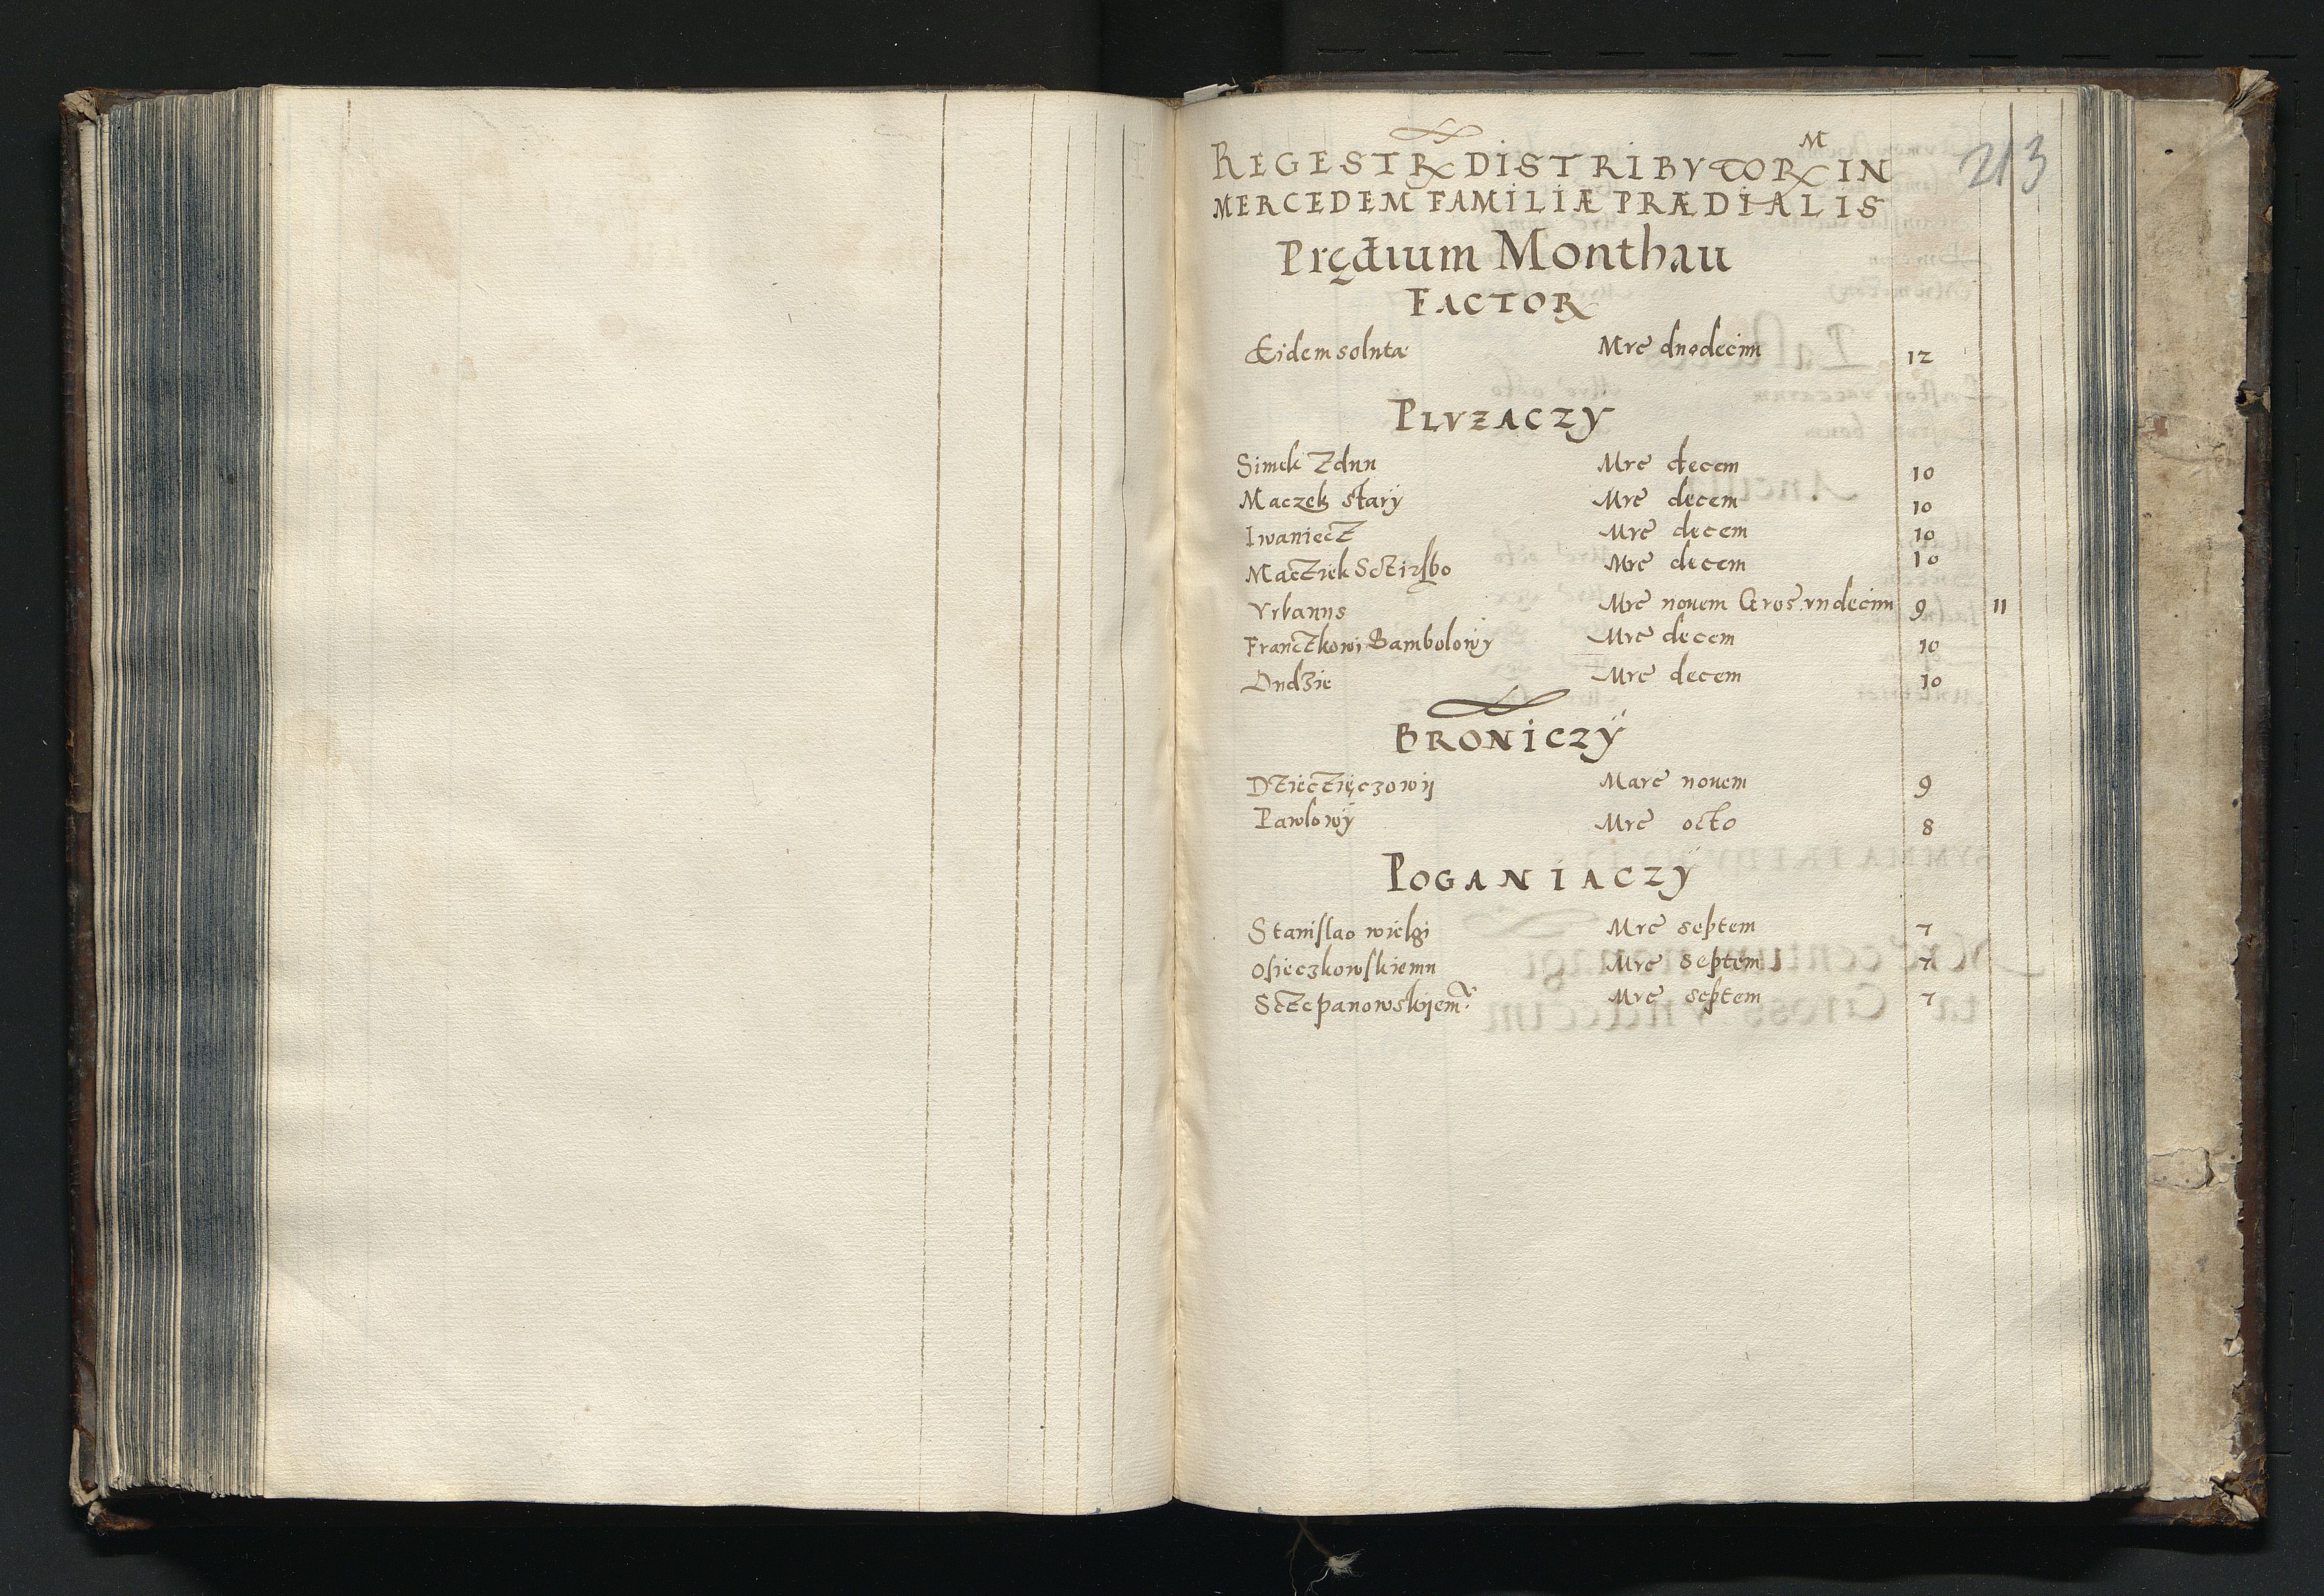 REGESTR DISTRIBVTOR M IN 213
MERCEDEM FAMILIÆ PRÆDIALIS
Prędium Monthau
FACTOR
Eidem soluta Mrc duodecim 12
PLVZACZY
Simek Zdun Mrc decem 10
Maczek starÿ Mrc decem 10
Iwaniecz Mrc decem 10
Macziek Mrc decem 10
Vrbanus Mrc nouem Gros vndecim 9 11
Franczkowi Bambolowÿ Mrc decem 10
Ondzie Mrc decem 10
BRONICZŸ
Dzieczięczowij Marc nouem 9
Pawlowÿ Mrc octo 8
POGANIACZŸ
Stanislao wielgi Mrc septem 7
Osieczkowskiemu Mrc septem 7
Sczepanowskiem Mrc septem 7